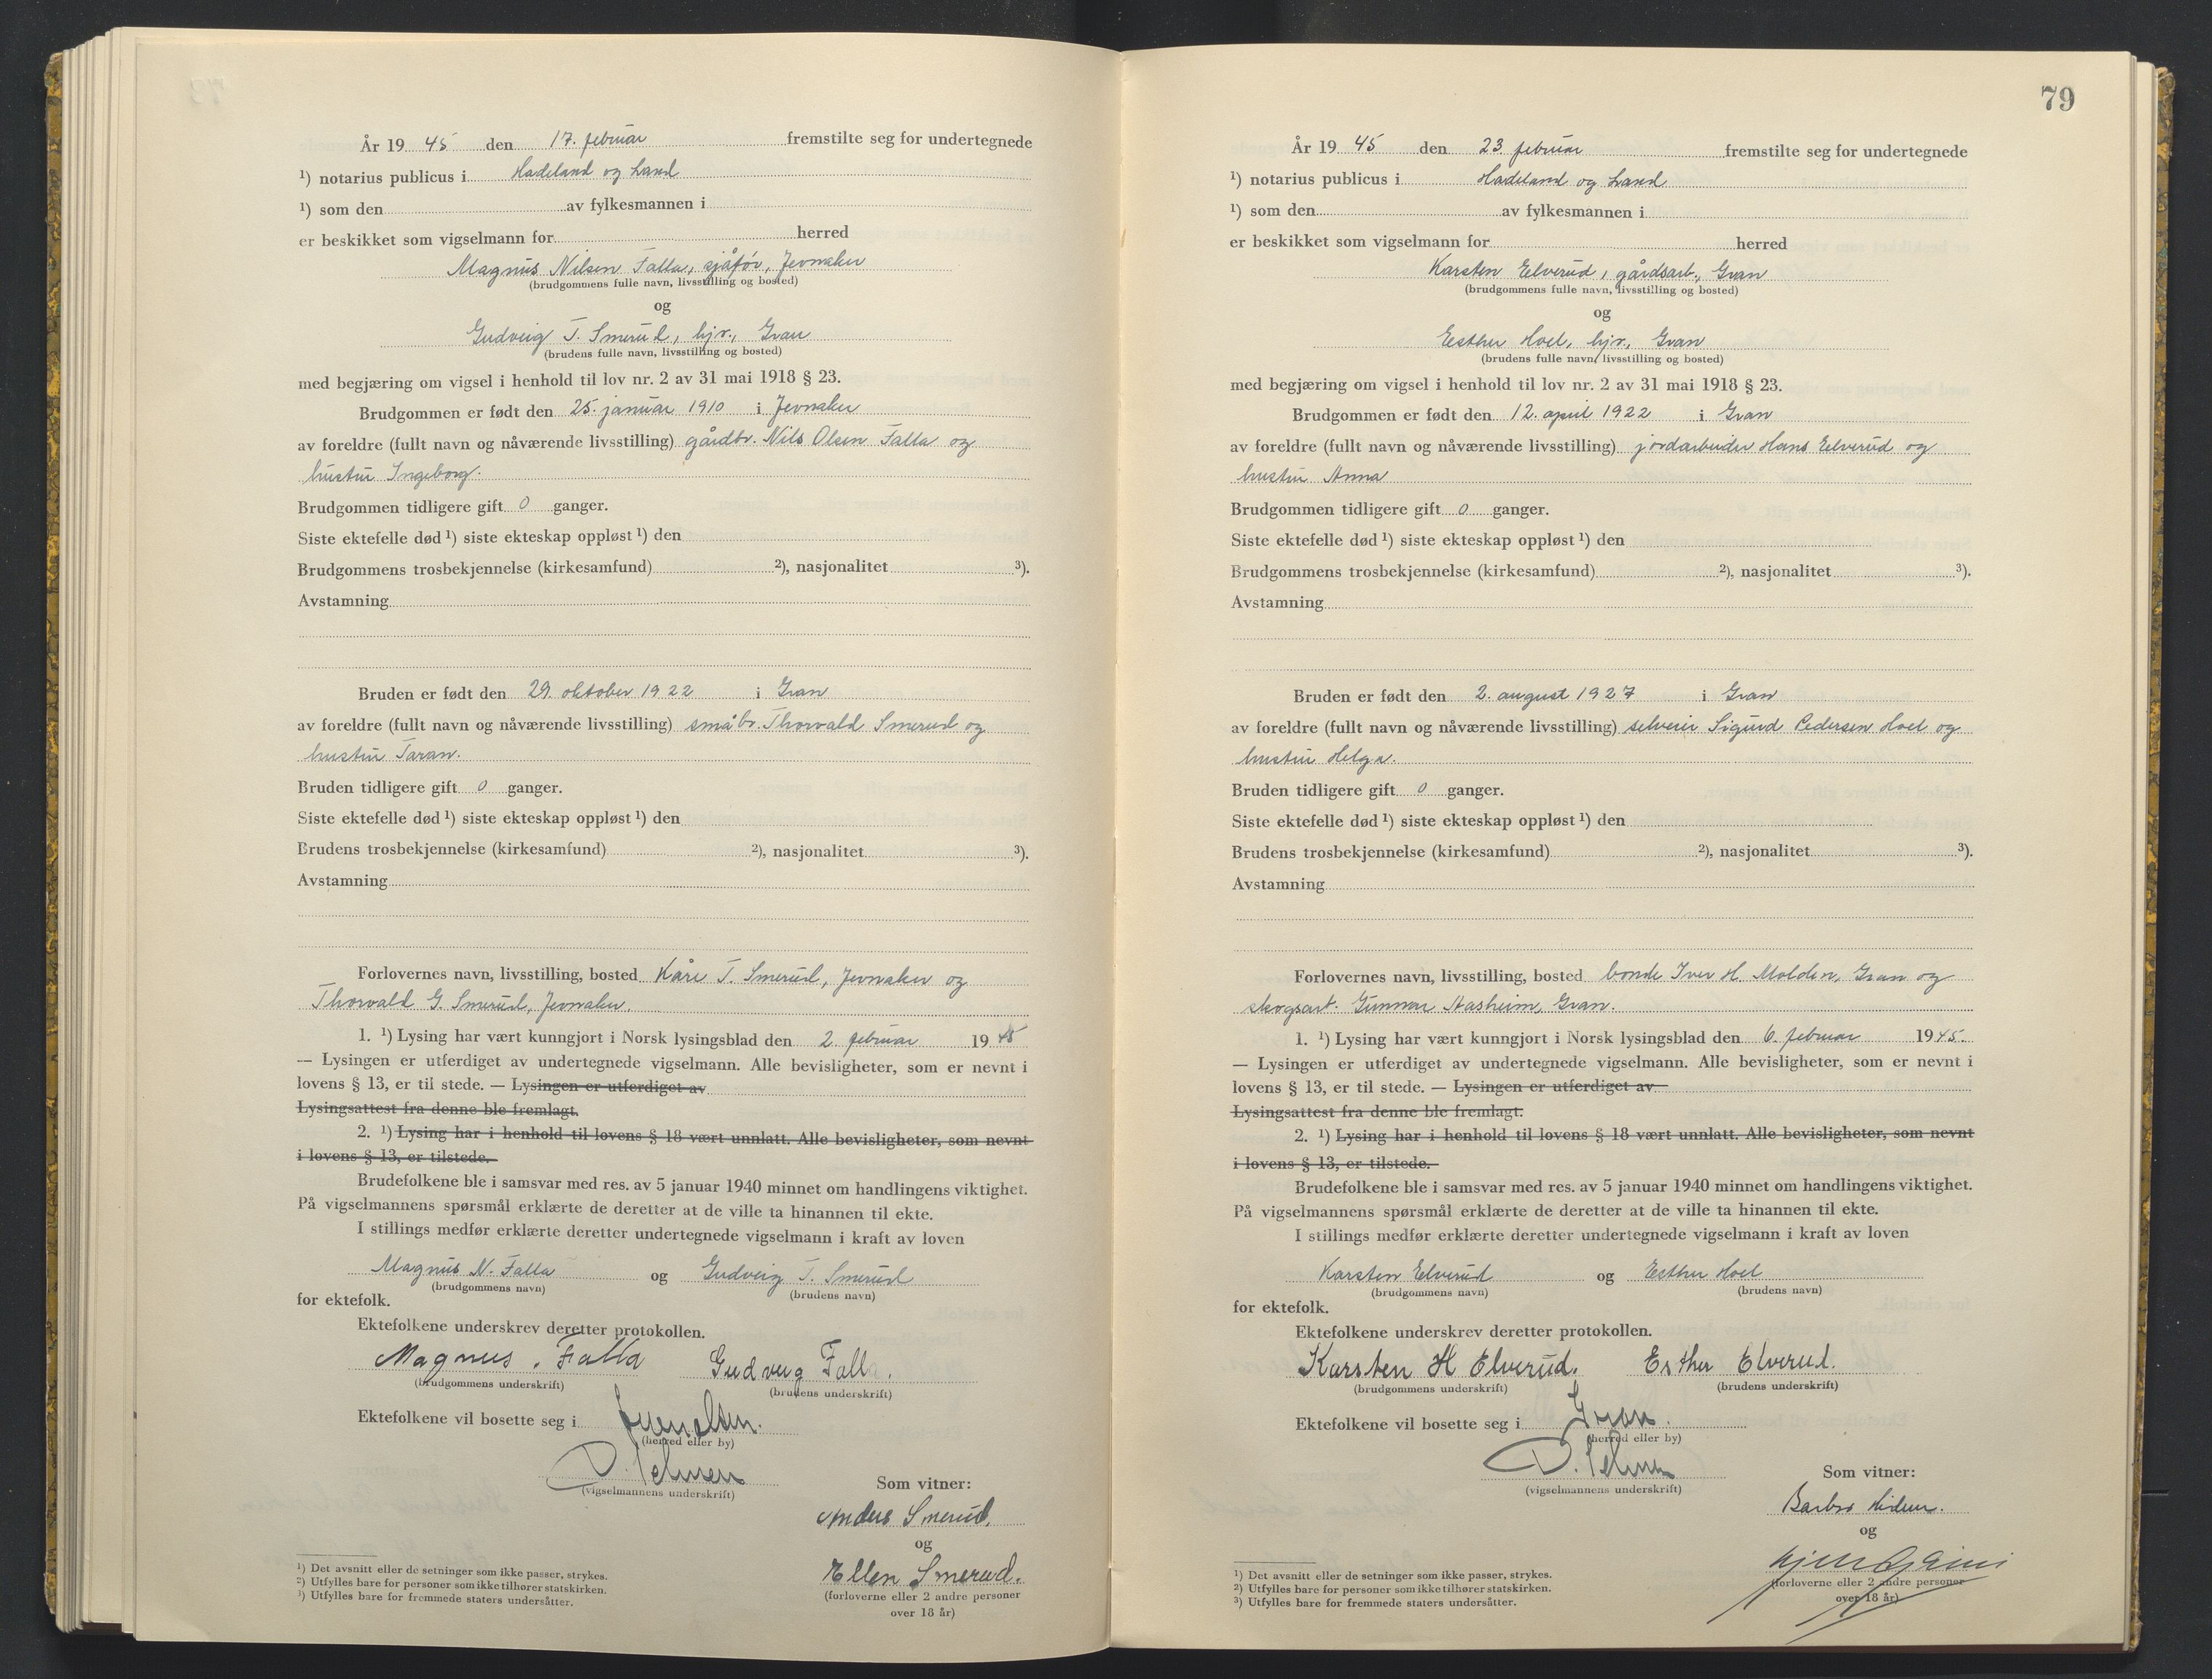 År 19 45 den 17. februar fremstilte seg for undertegnede
¹) notarius publicus i Hadeland og Land
¹) som den av fylkesmannen i
er beskikket som vigselmann for herred
Magnus Nilsen Falla, sjåfør, Jevnaker
(brudgommens fulle navn, livsstilling og bosted)
og
Gudveig T. Smerud, hjv., Gran
(brudens fulle navn, livsstilling og bosted)
med begjæring om vigsel i henhold til lov nr. 2 av 31 mai 1918 § 23.
Brudgommen er født den 25. januar 1910 i Jevnaker
av foreldre (fullt navn og nåværende livsstilling) gårdbr. Nils Olsen Falla og
hustru Ingeborg.
Brudgommen tidligere gift 0 ganger.
Siste ektefelle død ¹) siste ekteskap oppløst ¹) den
Brudgommens trosbekjennelse (kirkesamfund) ²), nasjonalitet ³).
Avstamning
Bruden er født den 29. oktober 1922 i Gran
av foreldre (fullt navn og nåværende livsstilling) småbr. Thorvald Smerud og
hustru Taran.
Bruden tidligere gift 0 ganger.
Siste ektefelle død ¹) siste ekteskap oppløst ¹) den
Brudens trosbekjennelse (kirkesamfund) ²), nasjonalitet ³).
Avstamning
Forlovernes navn, livsstilling, bosted Kåre T. Smerud, Jevnaker og
Thorvald G. Smerud, Jevnaker.
1. ¹) Lysing har vært kunngjort i Norsk lysingsblad den 2. februar 19 45
— Lysingen er utferdiget av undertegnede vigselmann. Alle bevisligheter, som er nevnt i
lovens § 13, er til stede. — Lysingen er utferdiget av
Lysingsattest fra denne ble fremlagt.
2. ¹) Lysing har i henhold til lovens § 18 vært unnlatt. Alle bevisligheter, som nevnt
i lovens § 13, er tilstede.
Brudefolkene ble i samsvar med res. av 5 januar 1940 minnet om handlingens viktighet.
På vigselmannens spørsmål erklærte de deretter at de ville ta hinannen til ekte.
I stillings medfør erklærte deretter undertegnede vigselmann i kraft av loven
Magnus N. Falla og Gudveig T. Smerud
(brudgommens navn) (brudens navn)
for ektefolk.
Ektefolkene underskrev deretter protokollen.
Magnus. Falla Gudveig Falla.
(brudgommens underskrift) (brudens underskrift)
Ektefolkene vil bosette seg i
(herred eller by)
(vigselmannens underskrift)
Som vitner:
Anders Smerud.
og
Ellen Smerud.
(forloverne eller 2 andre personer
over 18 år)
¹) Det avsnitt eller de setninger som ikke passer, strykes.
²) Utfylles bare for personer som ikke tilhører statskirken.
³) Utfylles bare for fremmede staters undersåtter.
79
År 19 45 den 23. februar fremstilte seg for undertegnede
¹) notarius publicus i Hadeland og Land
¹) som den av fylkesmannen i
er beskikket som vigselmann for herred
Karsten Elverud, gårdsarb., Gran
(brudgommens fulle navn, livsstilling og bosted)
og
Esther Hoel, hjv., Gran
(brudens fulle navn, livsstilling og bosted)
med begjæring om vigsel i henhold til lov nr. 2 av 31 mai 1918 § 23.
Brudgommen er født den 12. april 1922 i Gran
av foreldre (fullt navn og nåværende livsstilling) jordarbeider Hans Elverud og
hustru Anna
Brudgommen tidligere gift 0 ganger.
Siste ektefelle død ¹) siste ekteskap oppløst ¹) den
Brudgommens trosbekjennelse (kirkesamfund) ²), nasjonalitet ³).
Avstamning
Bruden er født den 2. august 1927 i Gran
av foreldre (fullt navn og nåværende livsstilling) selveier Sigurd Pedersen Hoel og
hustru Helga.
Bruden tidligere gift 0 ganger.
Siste ektefelle død ¹) siste ekteskap oppløst ¹) den
Brudens trosbekjennelse (kirkesamfund) ²), nasjonalitet ³).
Avstamning
Forlovernes navn, livsstilling, bosted bonde Iver H. Molden, Gran og
skogsarb. Gunnar Aasheim, Gran.
1. ¹) Lysing har vært kunngjort i Norsk lysingsblad den 6. februar 19 45.
— Lysingen er utferdiget av undertegnede vigselmann. Alle bevisligheter, som er nevnt i
lovens § 13, er til stede. — Lysingen er utferdiget av
Lysingsattest fra denne ble fremlagt.
2. ¹) Lysing har i henhold til lovens § 18 vært unnlatt. Alle bevisligheter, som nevnt
i lovens § 13, er tilstede.
Brudefolkene ble i samsvar med res. av 5 januar 1940 minnet om handlingens viktighet.
På vigselmannens spørsmål erklærte de deretter at de ville ta hinannen til ekte.
I stillings medfør erklærte deretter undertegnede vigselmann i kraft av loven
Karsten Elverud og Esther Hoel
(brudgommens navn) (brudens navn)
for ektefolk.
Ektefolkene underskrev deretter protokollen.
Karsten H Elverud. Esther Elverud.
(brudgommens underskrift) (brudens underskrift)
Ektefolkene vil bosette seg i Gran.
(herred eller by)
(vigselmannens underskrift)
Som vitner:
Barbro
og
(forloverne eller 2 andre personer
over 18 år)
¹) Det avsnitt eller de setninger som ikke passer, strykes.
²) Utfylles bare for personer som ikke tilhører statskirken.
³) Utfylles bare for fremmede staters undersåtter.